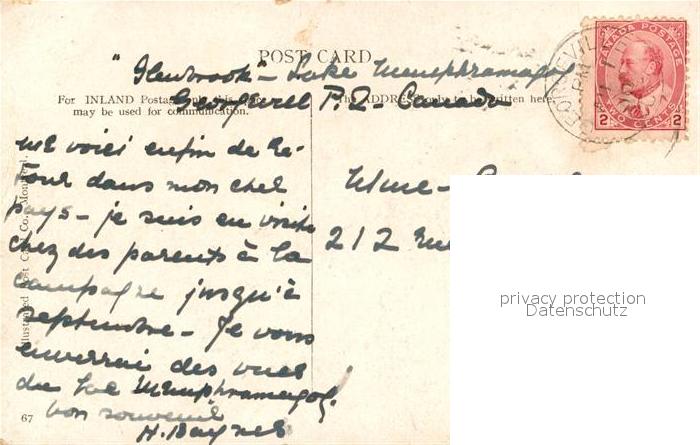 POST CARD
"Glenbrook" - Lake Memphramagog
Georgeville P.Q - Canada
For INLAND Postage only this space
may be used for communication.
The ADDRESS only to be written here
me voici enfin de re-
tour dans mon cher
pays - je suis en visite
chez des parents à la
campagne jusqu'à
Septembre - Je vous
enverrai des vues
du Lac Memphramagog!
bon souvenir
H. Baynes
Mme -
212 Rue
CANADA POSTAGE
2 TWO CENTS 2
Illustrated Post Card Co., Montreal.
67
privacy protection
Datenschutz